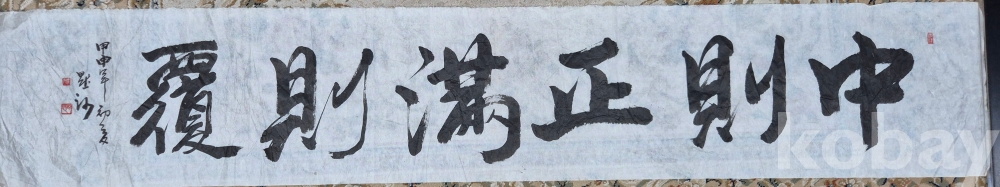 中則正滿則覆
甲申年初夏
kobay